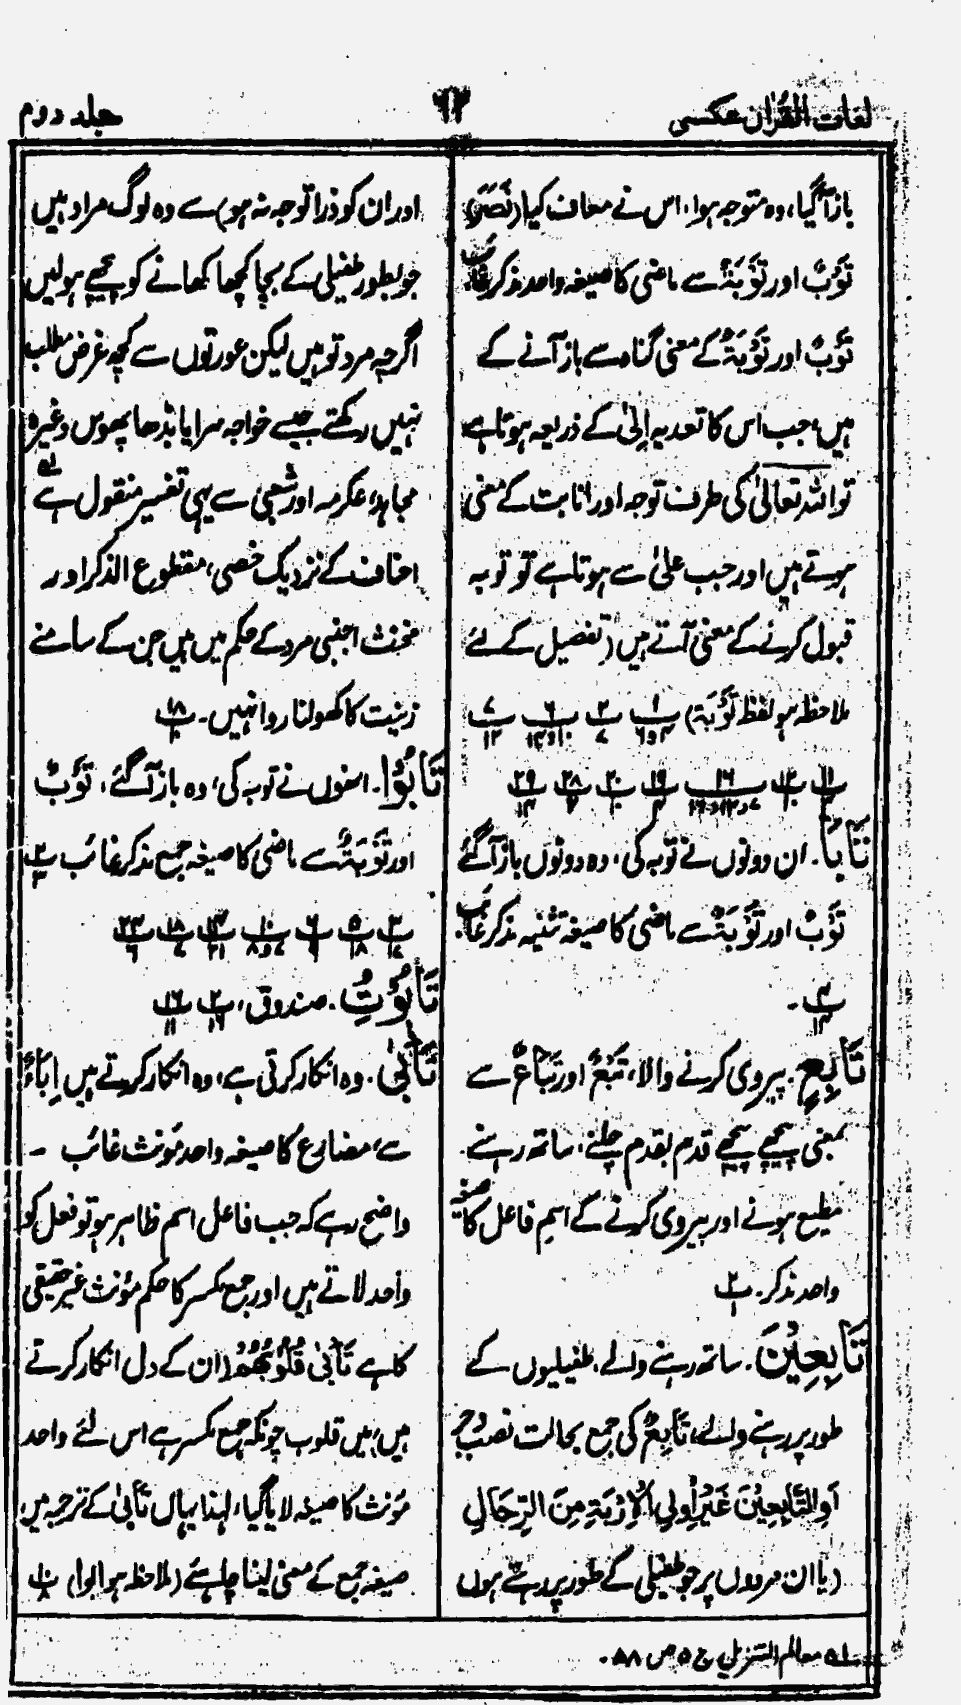 لغات القرآن عکسی
۶۲
جلد دوم
باز آ گیا، وہ متوجہ ہوا، اس نے معاف کیا (نَصَرَ)
تَوْبٌ اور تَوْبَةٌ سے ماضی کا صیغہ واحد مذکر غائب
تَوْبٌ اور تَوْبَةٌ کے معنی گناہ سے باز آنے کے
ہیں، جب اس کا تعدیہ اِلیٰ کے ذریعہ ہوتا ہے
تو اللہ تعالیٰ کی طرف توجہ اور انابت کے معنی
ہوتے ہیں اور جب علیٰ سے ہوتا ہے تو توبہ
قبول کرنے کے معنی آتے ہیں (تفصیل کے لئے
ملاحظہ ہو لفظ تَوْبَة)
تَابَا. ان دونوں نے توبہ کی، وہ دونوں باز آ گئے
تَوْبٌ اور تَوْبَةٌ سے ماضی کا صیغہ تثنیہ مذکر غائب.
تَابِعٍ. پیروی کرنے والا، تَبَعٌ اور تَبَاعٌ سے
بمعنی پیچھے پیچھے قدم بقدم چلنے، ساتھ رہنے
مطیع ہونے اور پیروی کرنے کے اسمِ فاعل کا صیغہ
واحد مذکر.
تَابِعِيْنَ. ساتھ رہنے والے، طفیلیوں کے
طور پر رہنے والے، تَابِعٌ کی جمع بحالت نصب و جر
اَوِ التَّابِعِيْنَ غَيْرِ اُولِي الْاِرْبَةِ مِنَ الرِّجَالِ
(یا ان مردوں پر جو طفیلی کے طور پر رہتے ہوں
اور ان کو ذرا توجہ نہ ہو) سے وہ لوگ مراد ہیں
جو بطور طفیلی کے بچا کچھا کھانے کو پیچھے ہو لیں
اگرچہ مرد تو ہیں لیکن عورتوں سے کچھ غرض مطلب
نہیں رکھتے جیسے خواجہ سرا یا بڈھا پھوس وغیرہ
مجاہد، عکرمہ اور شعبی سے یہی تفسیر منقول ہے
احناف کے نزدیک خصی، مقطوع الذکر اور
مخنث اجنبی مرد کے حکم میں ہیں جن کے سامنے
زینت کا کھولنا روا نہیں۔
تَابُوْا. انھوں نے توبہ کی، وہ باز آ گئے، تَوْبٌ
اور تَوْبَةٌ سے ماضی کا صیغہ جمع مذکر غائب
تَابُوْتُ. صندوق،
تَاْبٰى. وہ انکار کرتی ہے، وہ انکار کرتے ہیں اِبَاءٌ
سے، مضارع کا صیغہ واحد مؤنث غائب –
واضح رہے کہ جب فاعل اسم ظاہر ہو تو فعل کو
واحد لاتے ہیں اور جمع مکسر کا حکم مؤنث غیر حقیقی
کا ہے تَاْبٰى قُلُوْبُهُمْ (ان کے دل انکار کرتے
ہیں) میں قلوب چونکہ جمع مکسر ہے اس لئے واحد
مؤنث کا صیغہ لایا گیا، لہذا یہاں تابیٰ کے ترجمہ میں
صیغہ جمع کے معنی لینا چاہئے (ملاحظہ ہو ابوا)
۱ے معالم التنزیل ج ۵ ص ۸۸.